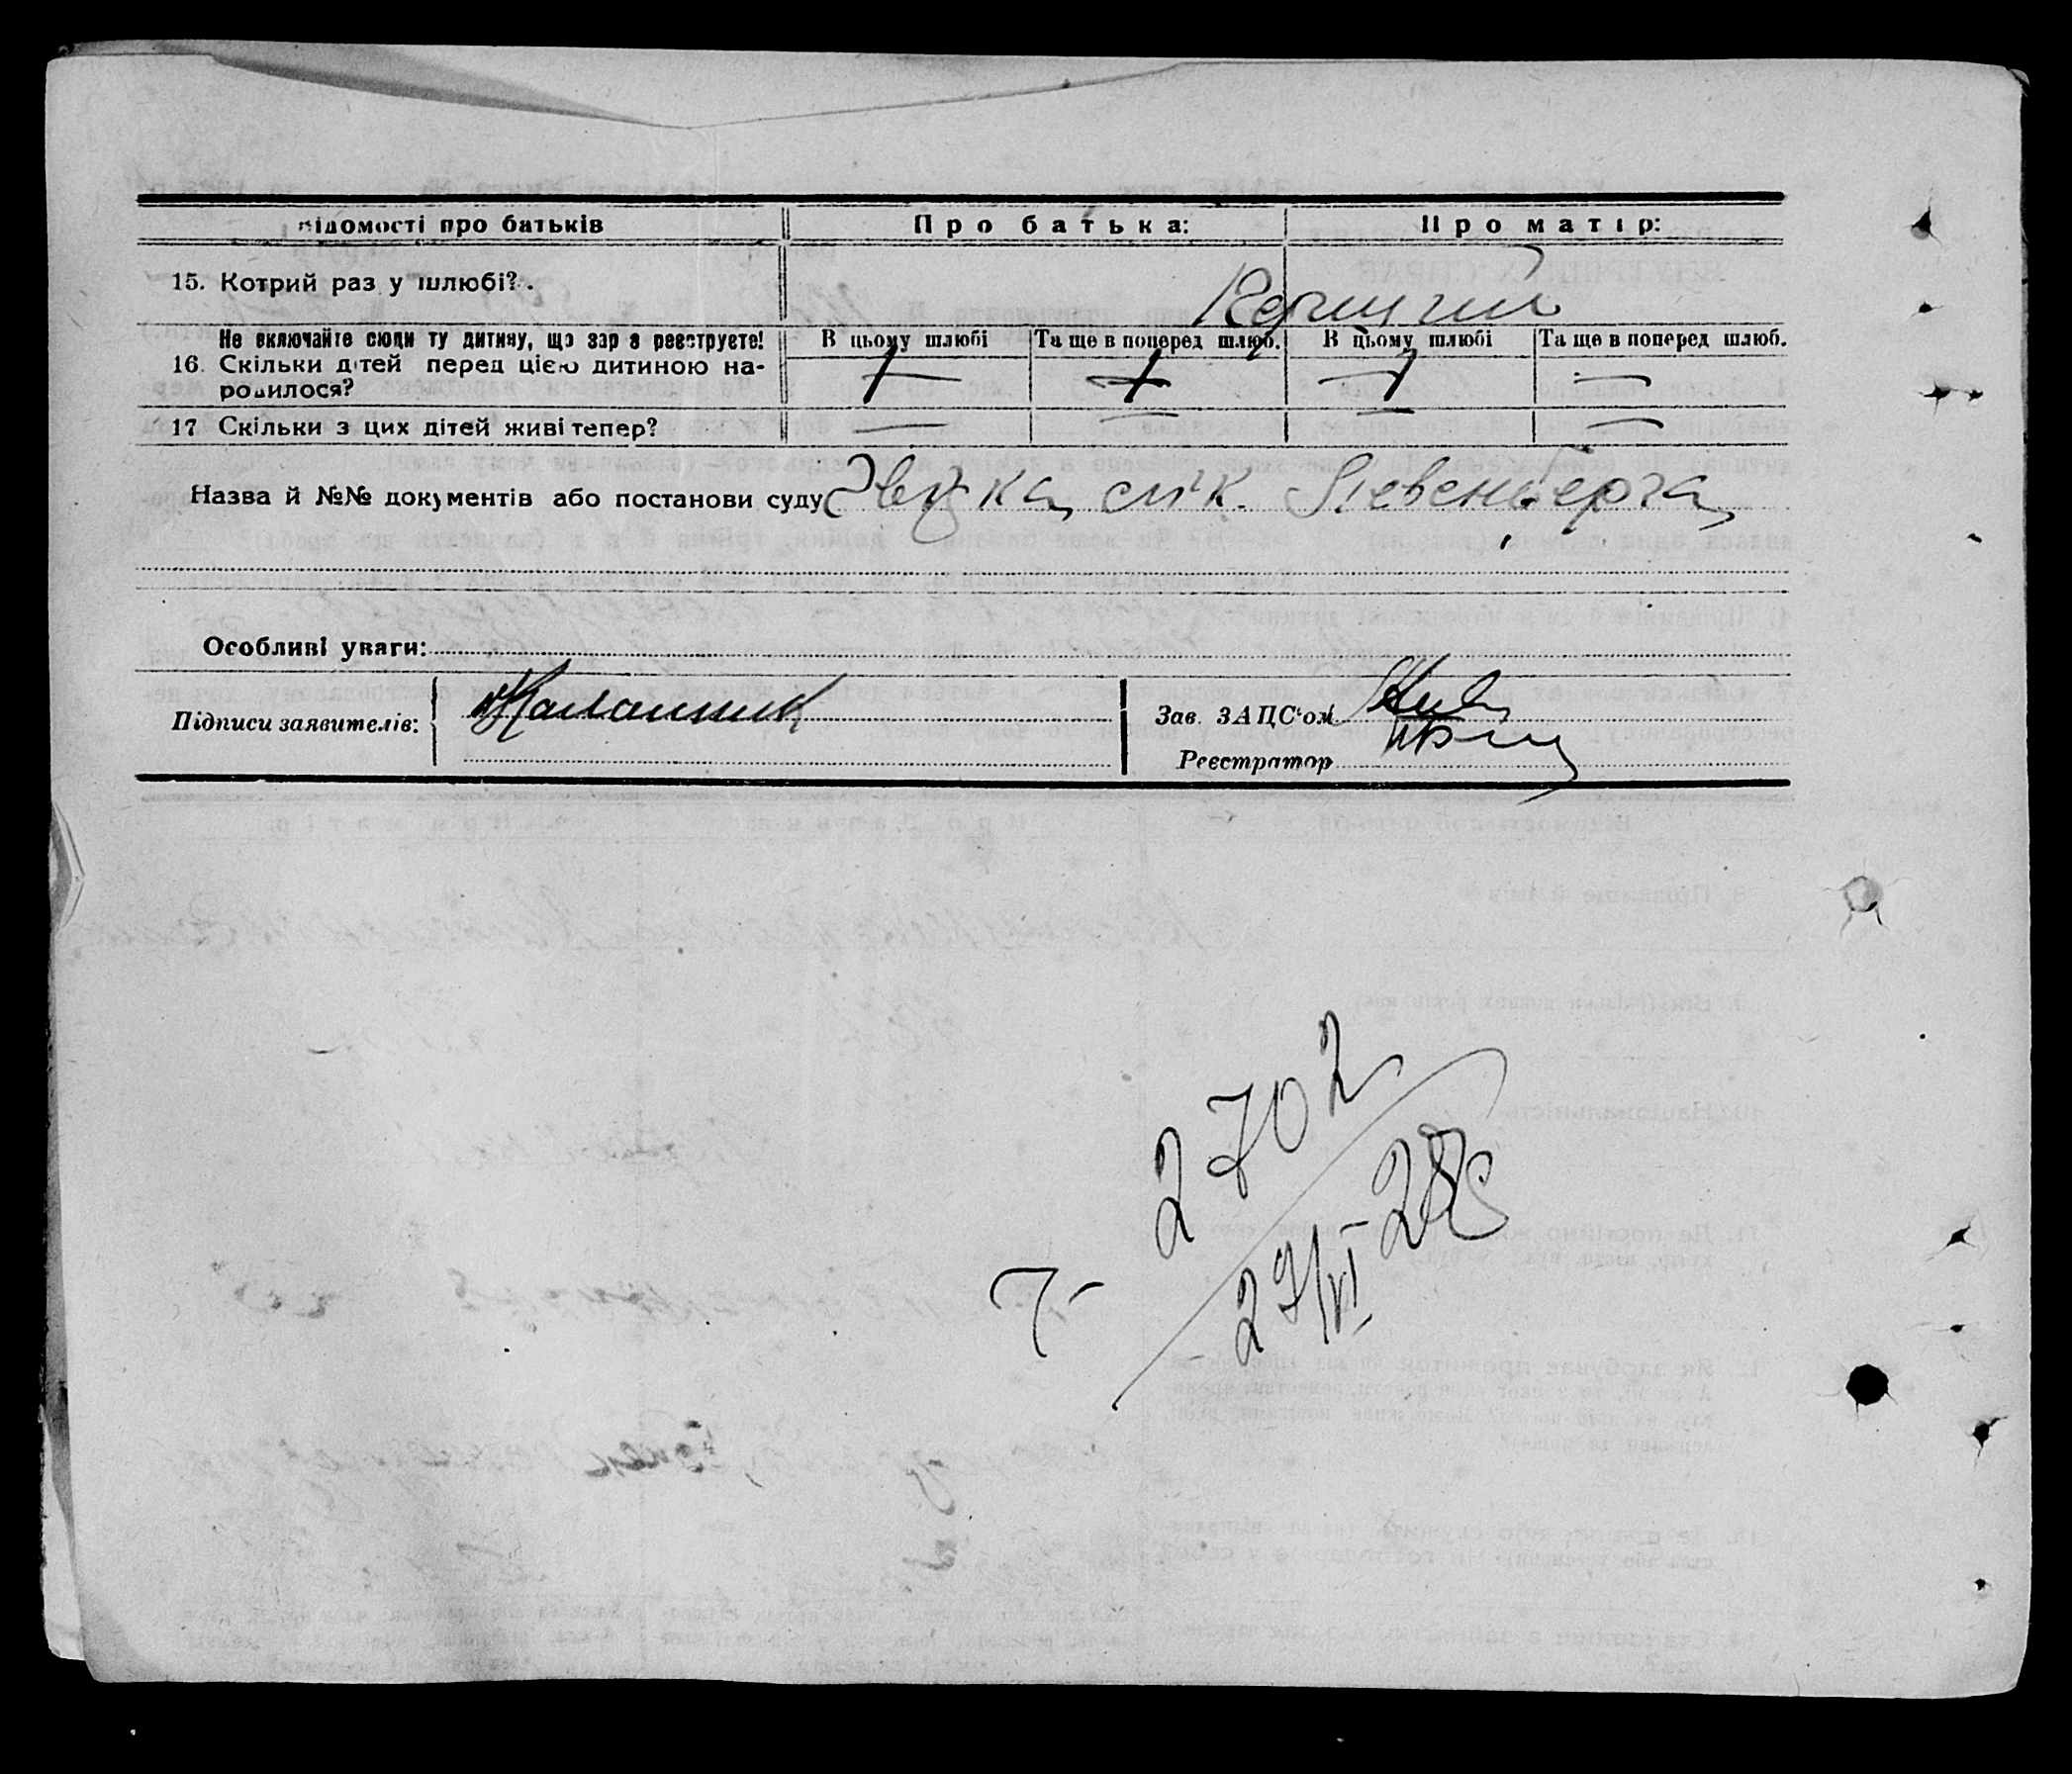 Відомості про батьків
Про батька:
Про матір:
15. Котрий раз у шлюбі?
Не включайте сюди ту дитину, що зараз реєструєте!
В цьому шлюбі
Та ще в поперед. шлюб.
В цьому шлюбі
Та ще в поперед. шлюб.
16. Скільки дітей перед цією дитиною на-
родилося?
— — — —
17 Скільки з цих дітей живі тепер?
— — — —
Назва й №№ документів або постанови суду
Особливі уваги:
Підписи заявителів:
Зав. ЗАГС'ом
Реєстратор
2702
29/VI-28